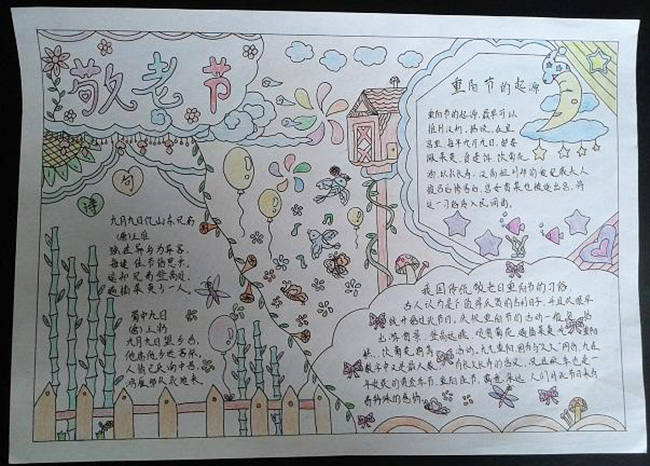 敬老节
诗句
九月九日忆山东兄弟
(唐)王维
独在异乡为异客,
每逢佳节倍思亲。
遥知兄弟登高处,
遍插茱萸少一人。
蜀中九日
(唐)王勃
九月九日望乡台,
他席他乡送客杯。
人情已厌南中苦,
鸿雁那从北地来。
重阳节的起源
重阳节的起源,最早可以
推到汉初。据说,在皇
宫里,每年九月九日,都要
佩茱萸,食蓬饵,饮菊花
酒,以求长寿;汉高祖刘邦的爱妃戚夫人
被吕后惨害后,宫女贾某也被逐出宫,将
这一习俗传入民间。
我国传统敬老日重阳节的习俗
古人认为是个值得庆贺的吉利日子,并且从很早
就开始过此节日。庆祝重阳节的活动一般包括
出游赏景、登高远眺、观赏菊花、遍插茱萸、吃重阳
糕、饮菊花酒等活动。九九重阳,因为与"久久"同音,九在
数字中又是最大数,有长久长寿的含